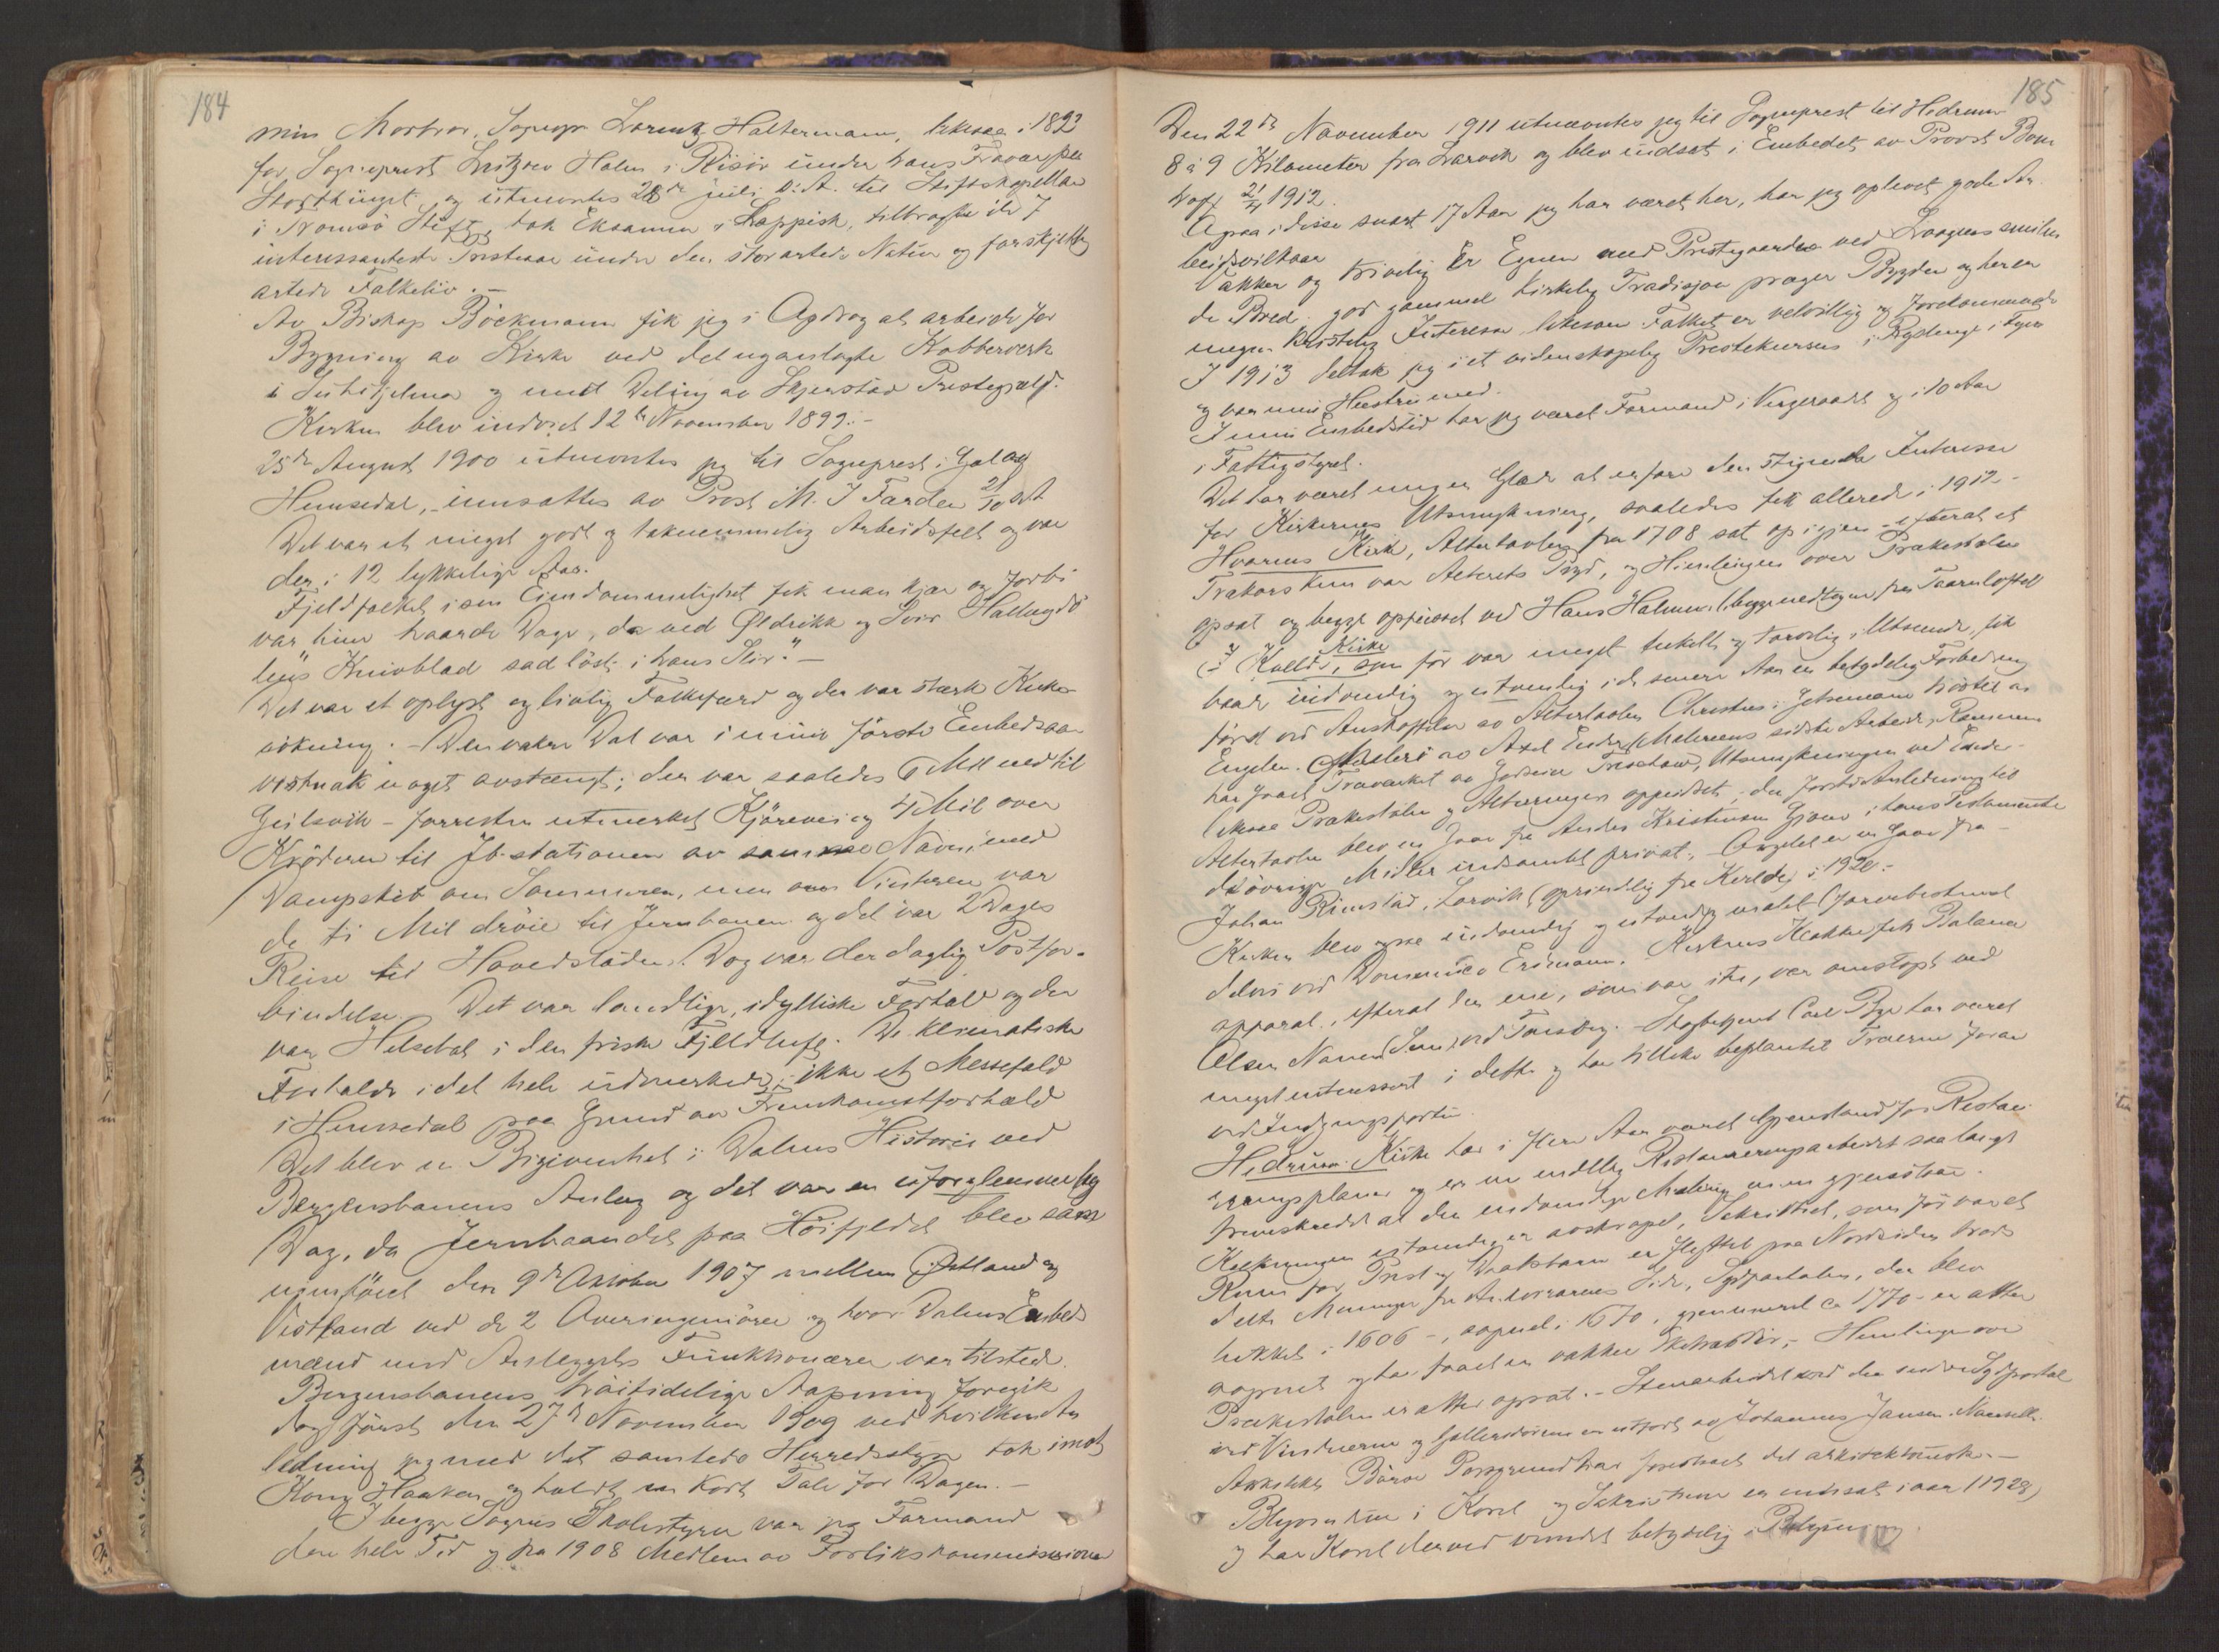 184
min Morbror, Sogpr. Lorentz Haltermann, likesaa i 1892
for Sogneprest Kritzow Holm i Risör under hans Fravær paa
Storthinget og utnevntes 28de juli s. A. til Stiftskapellan
i Tromsö Stift, tok Eksamen i Lappisk, tilbragte de 7
interessanteste Presteaar under den storartede Natur og forskjellig
artede Folkeliv. –
Av Biskop Böckmann fik jeg i Opdrag at arbeide for
Bygning av Kirke ved det nyanlagte Kobberverk
i Sulitjelma og med Deling av Skjerstad Prestegjeld.
Kirken blev indviet 12te November 1899. –
25de August 1900 utnevntes jeg til Sogneprest i Gol og
Hemsedal, – innsattes av Prost M. J. Færden 21/10 s A
Det var et meget godt og taknemmelig Arbeidsfelt og var
der i 12 lykkelige Aar.
Fjeldfolket i sin Eiendommelighet fik man kjær og forbi
var hine haarde Dage, da ved Øldrikk og Svir Hallingdö
lens "Knivblad sad löst i hans Slir." –
Det var et oplyst og livlig Folkeferd og der var stærk Kirke
sökning. – Den vakre Dal var i mine første Embedsaar
vistnok noget avstængt; der var saaledes 6 Mil ned til
Gulsvik – forresten utmerket Kjörevei og 4 Mil over
Kröderen til Jb-stationen av samme Navn, med
Dampskib om Sommeren, men om Vinteren var
de ti Mil dröie til Jernbanen og det var 2 Dages
Reise til Hovedstaden. Dog var der daglig Postfor-
bindelse. Det var landlige, idylliske Forhold og der
var Helsebot i den friske Fjeldluft. De klimatiske
Forholde i det hele udmerkede; ikke et Messefald
i Hemsedal paa Grund av Fremkomstforhold
Det blev en Begivenhet i Dalens Historie ved
Bergensbanens Anlæg og det var en uforglemmelig
Dag, da Jernbaandet paa Höifjeldet blev sam
menföiet den 9de Oktober 1907 mellem Østland og
Vestland ved de 2 Overingeniörer og hvor Dalens Embeds
mænd med Anleggets Funktionærer var tilstede.
Bergensbanens höitidelige Aapning foregik
dog först den 27de November 1909 ved hvilken An
ledning jeg med det samlede Herredsstyre tok imot
Kong Haakon og holdt en kort Tale for Dagen. –
I begge Sognes Skolestyrer var jeg Formand
den hele Tid og fra 1908 Medlem av Forlikskommissionen
185
Den 22de November 1911 utnevntes jeg til Sogneprest til Hedrum
8 à 9 Kilometer fra Larvik og blev indsat i Embedet av Provst Bom
hoff 21/4 1912.
Ogsaa i disse snart 17 Aar jeg har været her, har jeg oplevet gode Ar
beidsvilkaar
Vakker og trivelig er Egnen med Prestegaarden ved Laagens smilen
de Bred. god gammel kirkelig Tradisjon præger Bygden og her er
megen kristelig Interesse likesom Folket er velvillig og fordomsfrit
I 1913 deltok jeg i et videnskapelig Prestekursus i Ryslinge i Fyen
og var min Hustru med.
I min Embedstid har jeg været Formand i Vergeraadet og i 10 Aar
i Fattigstyret.
Det har været mig en Glæde at erfare den stigende Interesse
for Kirkernes Utsmykning, saaledes fik allerede i 1912 –
Hvarnes Kirke, Altertavlen fra 1708 sat op igjen – efterat et
Trækors kun var Alterets Pryd, og Himlingen over Prækestolen
opsat og begge oppusset ved Hans Holmen (begge nedtagne fra Taarnloftet
I Kvelde Kirke, som för var meget enkelt og tarvelig i Utseende, fik
baade indvendig og utvendig i de senere Aar en betydelig Forbedring
först ved Anskaffelse av Altertavlen Christus i Getsemane tröstet av
Engelen. Maleri av Axel Ender (Malerens sidste Arbeide). Rammen
har faaet Træverket av Godseier Treschow, Utsmykningen ved Ender –
likesaa Prækestolen og Alterringen oppudset, – der forste Anledning til
Altertavlen blev en Gave fra Anders Kristensen Gjone i hans Testamente
de övrige Midler indsamlet privat. Orgelet er en Gave fra –
Johan Rimstad, Larvik (oprindelig fra Kvelde) i 1920. –
Kirken blev ogsaa indvendig og utvendig malet (forarbeidet
delvis ved Domenico Erdmann. Kirkens Klokker fik Balance
apparat, efterat den ene, som var itu, var omstøpt ved
Olsen Nauen (Sem) ved Tönsberg. – Skogbetjent Carl Bye har været
meget interessert i dette og har tillike beplantet Trærne foran
ved Indgangsporten.
Hedrum Kirke har i flere Aar været Gjenstand for Restau-
reringsplaner og er nu endelig Restaureringsarbeidet saa langt
fremskredet at den indvendige Maling nu gjenstaar.
Kalkningen utvendig er avskrapet, Sakristiet, som för var et
Rum for Prest og Daabsbarn er flyttet paa Nordsiden trods
delte Meninger fra Antikvarenes Side, Sydportalen, der blev
lukket i 1606 –, aapnet i 1670, gjenmuret ca 1770 – er atter
aapnet og har faaet en vakker Ekedør, – Himlingen over
Prækestolen er atter opsat. – Stenarbeidet ved den indre Sydportal
ved Vinduerne og Galleridörene er utfört av Johannes Jansen Nanset.
Arkitekt Börve Porsgrund har forestaaet det arkitektoniske. –
Blyvinduer i Koret og Sakristiene er innsat iaar (1928)
og har Koret derved vundet betydelig i Belysning.